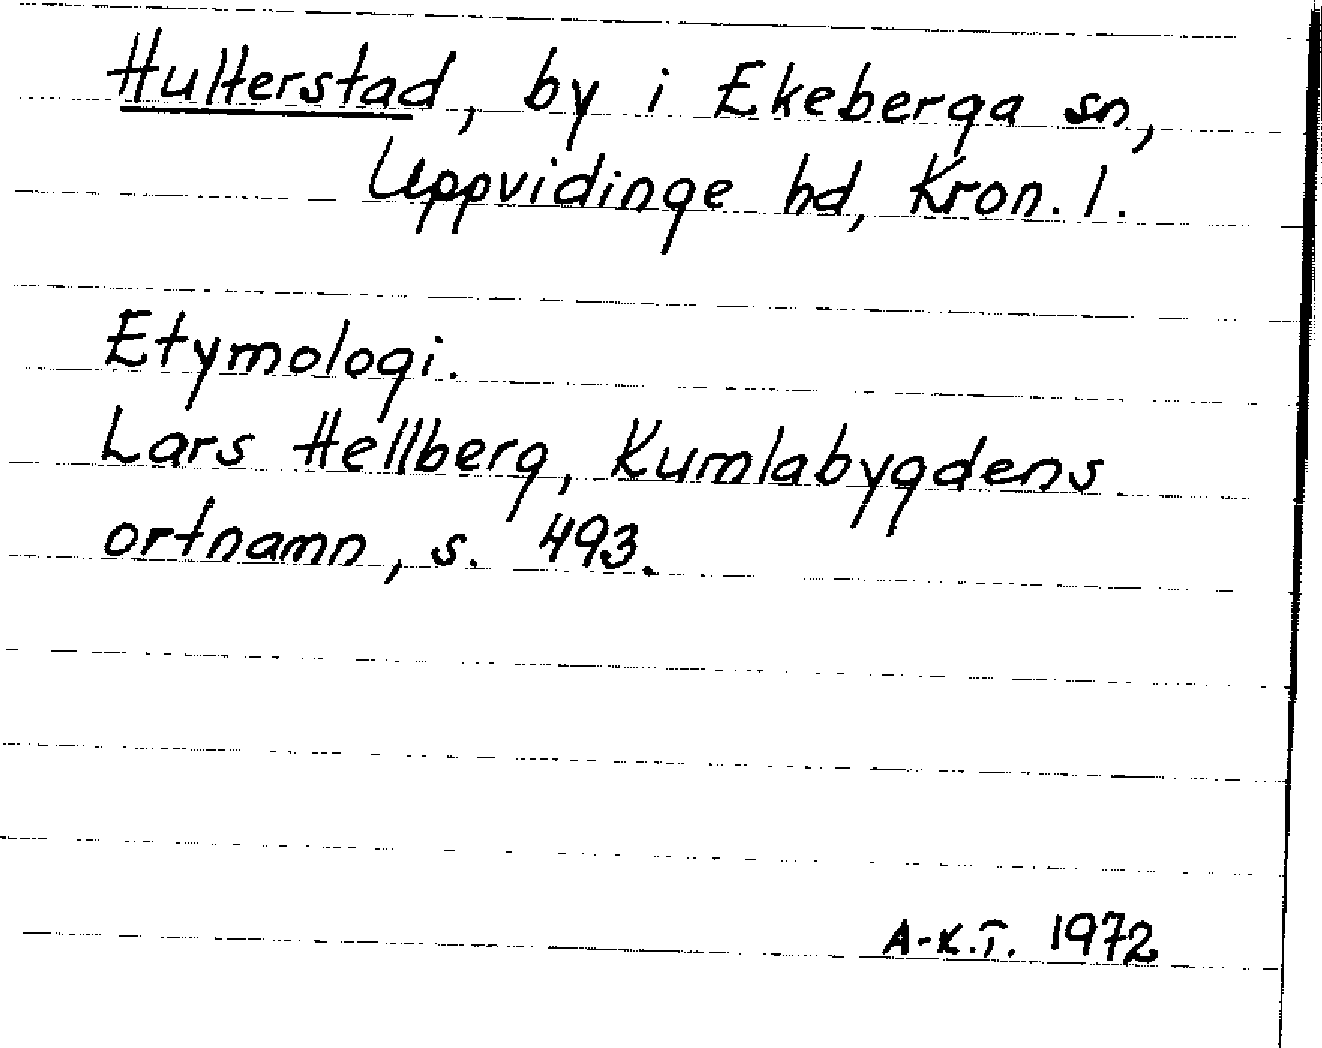 Hulterstad, by i Ekeberga sn,
Uppvidinge hd, Kron. l.
Etymologi.
Lars Hellberg, Kumlabygdens
ortnamn, s. 493.
A-K.T. 1972